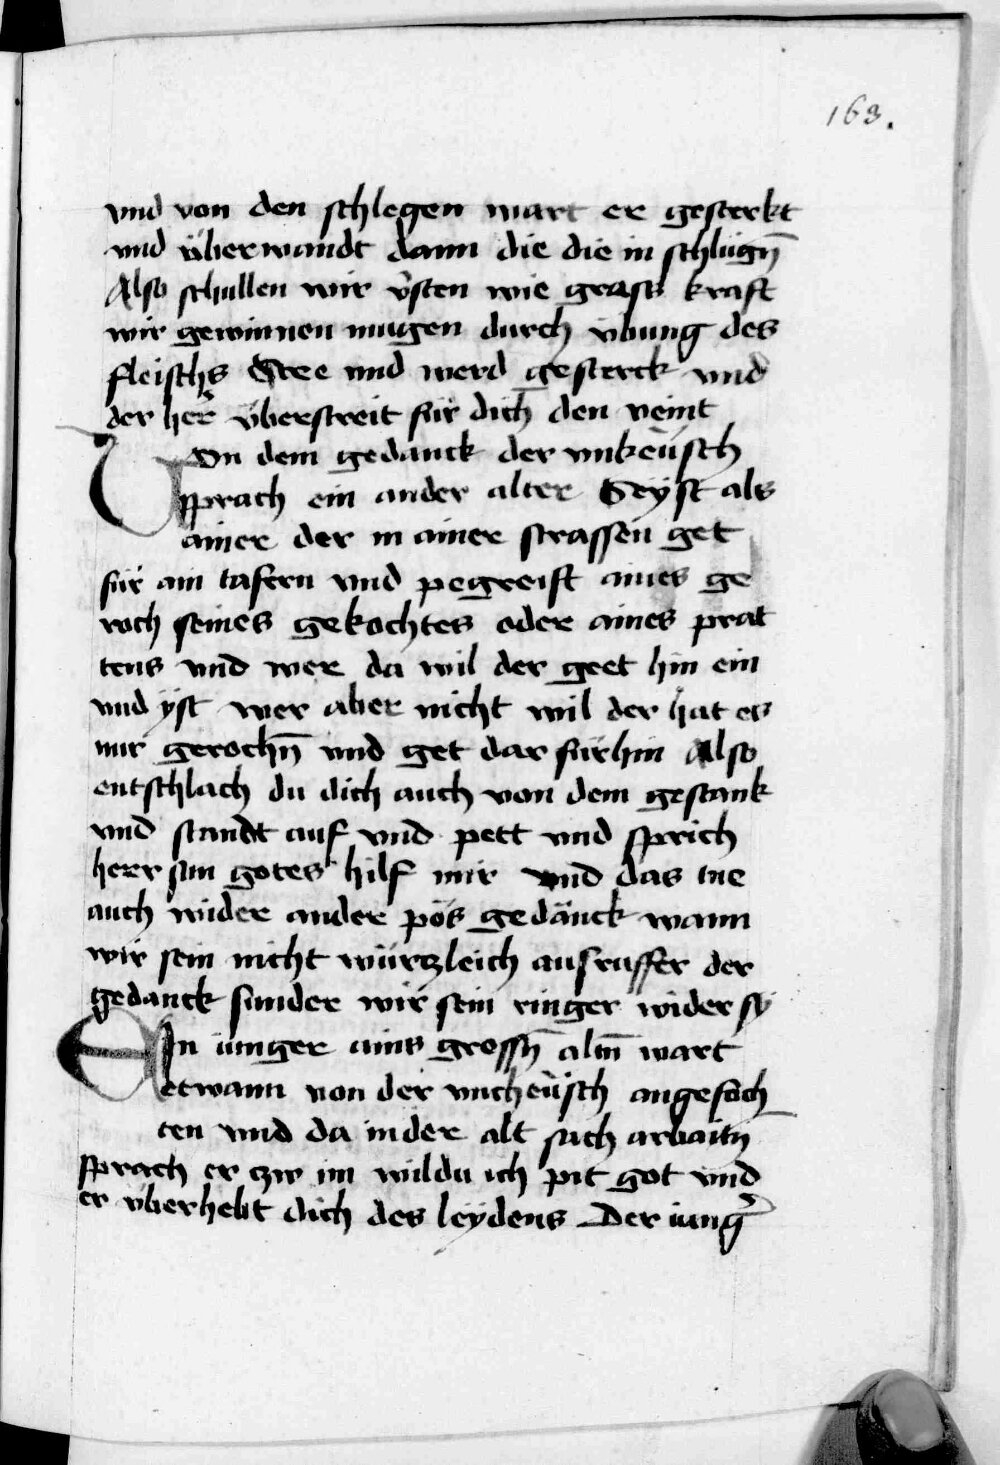 163.
vnd von den schlegen wart er gesterkt
vnd überwandt dann die die in schlugn̄
Also schullen wir v̈sten wie grass kraft
wir gewinnen mugen durch v̈bung des
fleischs Stee vnd werd gesterck vnd
der her̄ v̈berstreit für dich den veint
Von dem gedanck der vnkeüsch
sprach ein ander alter Seÿst als
ainer der in ainer strassen get
für ain tafern vnd pegreift aines ge
roch seines gekochtes oder aines prat
tens vnd wer da wil der geet hin ein
vnd ÿst wer aber nicht wil der hat es
nur gerochn̄ vnd get dar fürhin Also
entschlach du dich auch von dem gestank
vnd standt auf vnd pett vnd sprich
herr sun gotes hilf mir vnd das tue
auch wider ander pös gedänck wann
wir sein nicht würtzleich ausruffer der
gedanck sunder wir sein ringer wider sÿ
Ein iunger ains grossn̄ altn̄ wart
etwann von der vncheüsch angefoch
ten vnd da in der alt sach arbaitn̄
sprach er tzw im wildu ich pit got vnd
er v̈berhebt dich des leÿdens Der iung̉